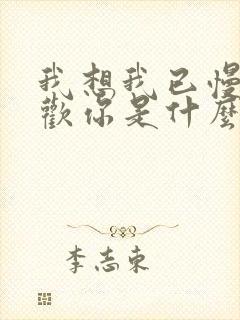 我想我已慢
歡你是什麼
李志東